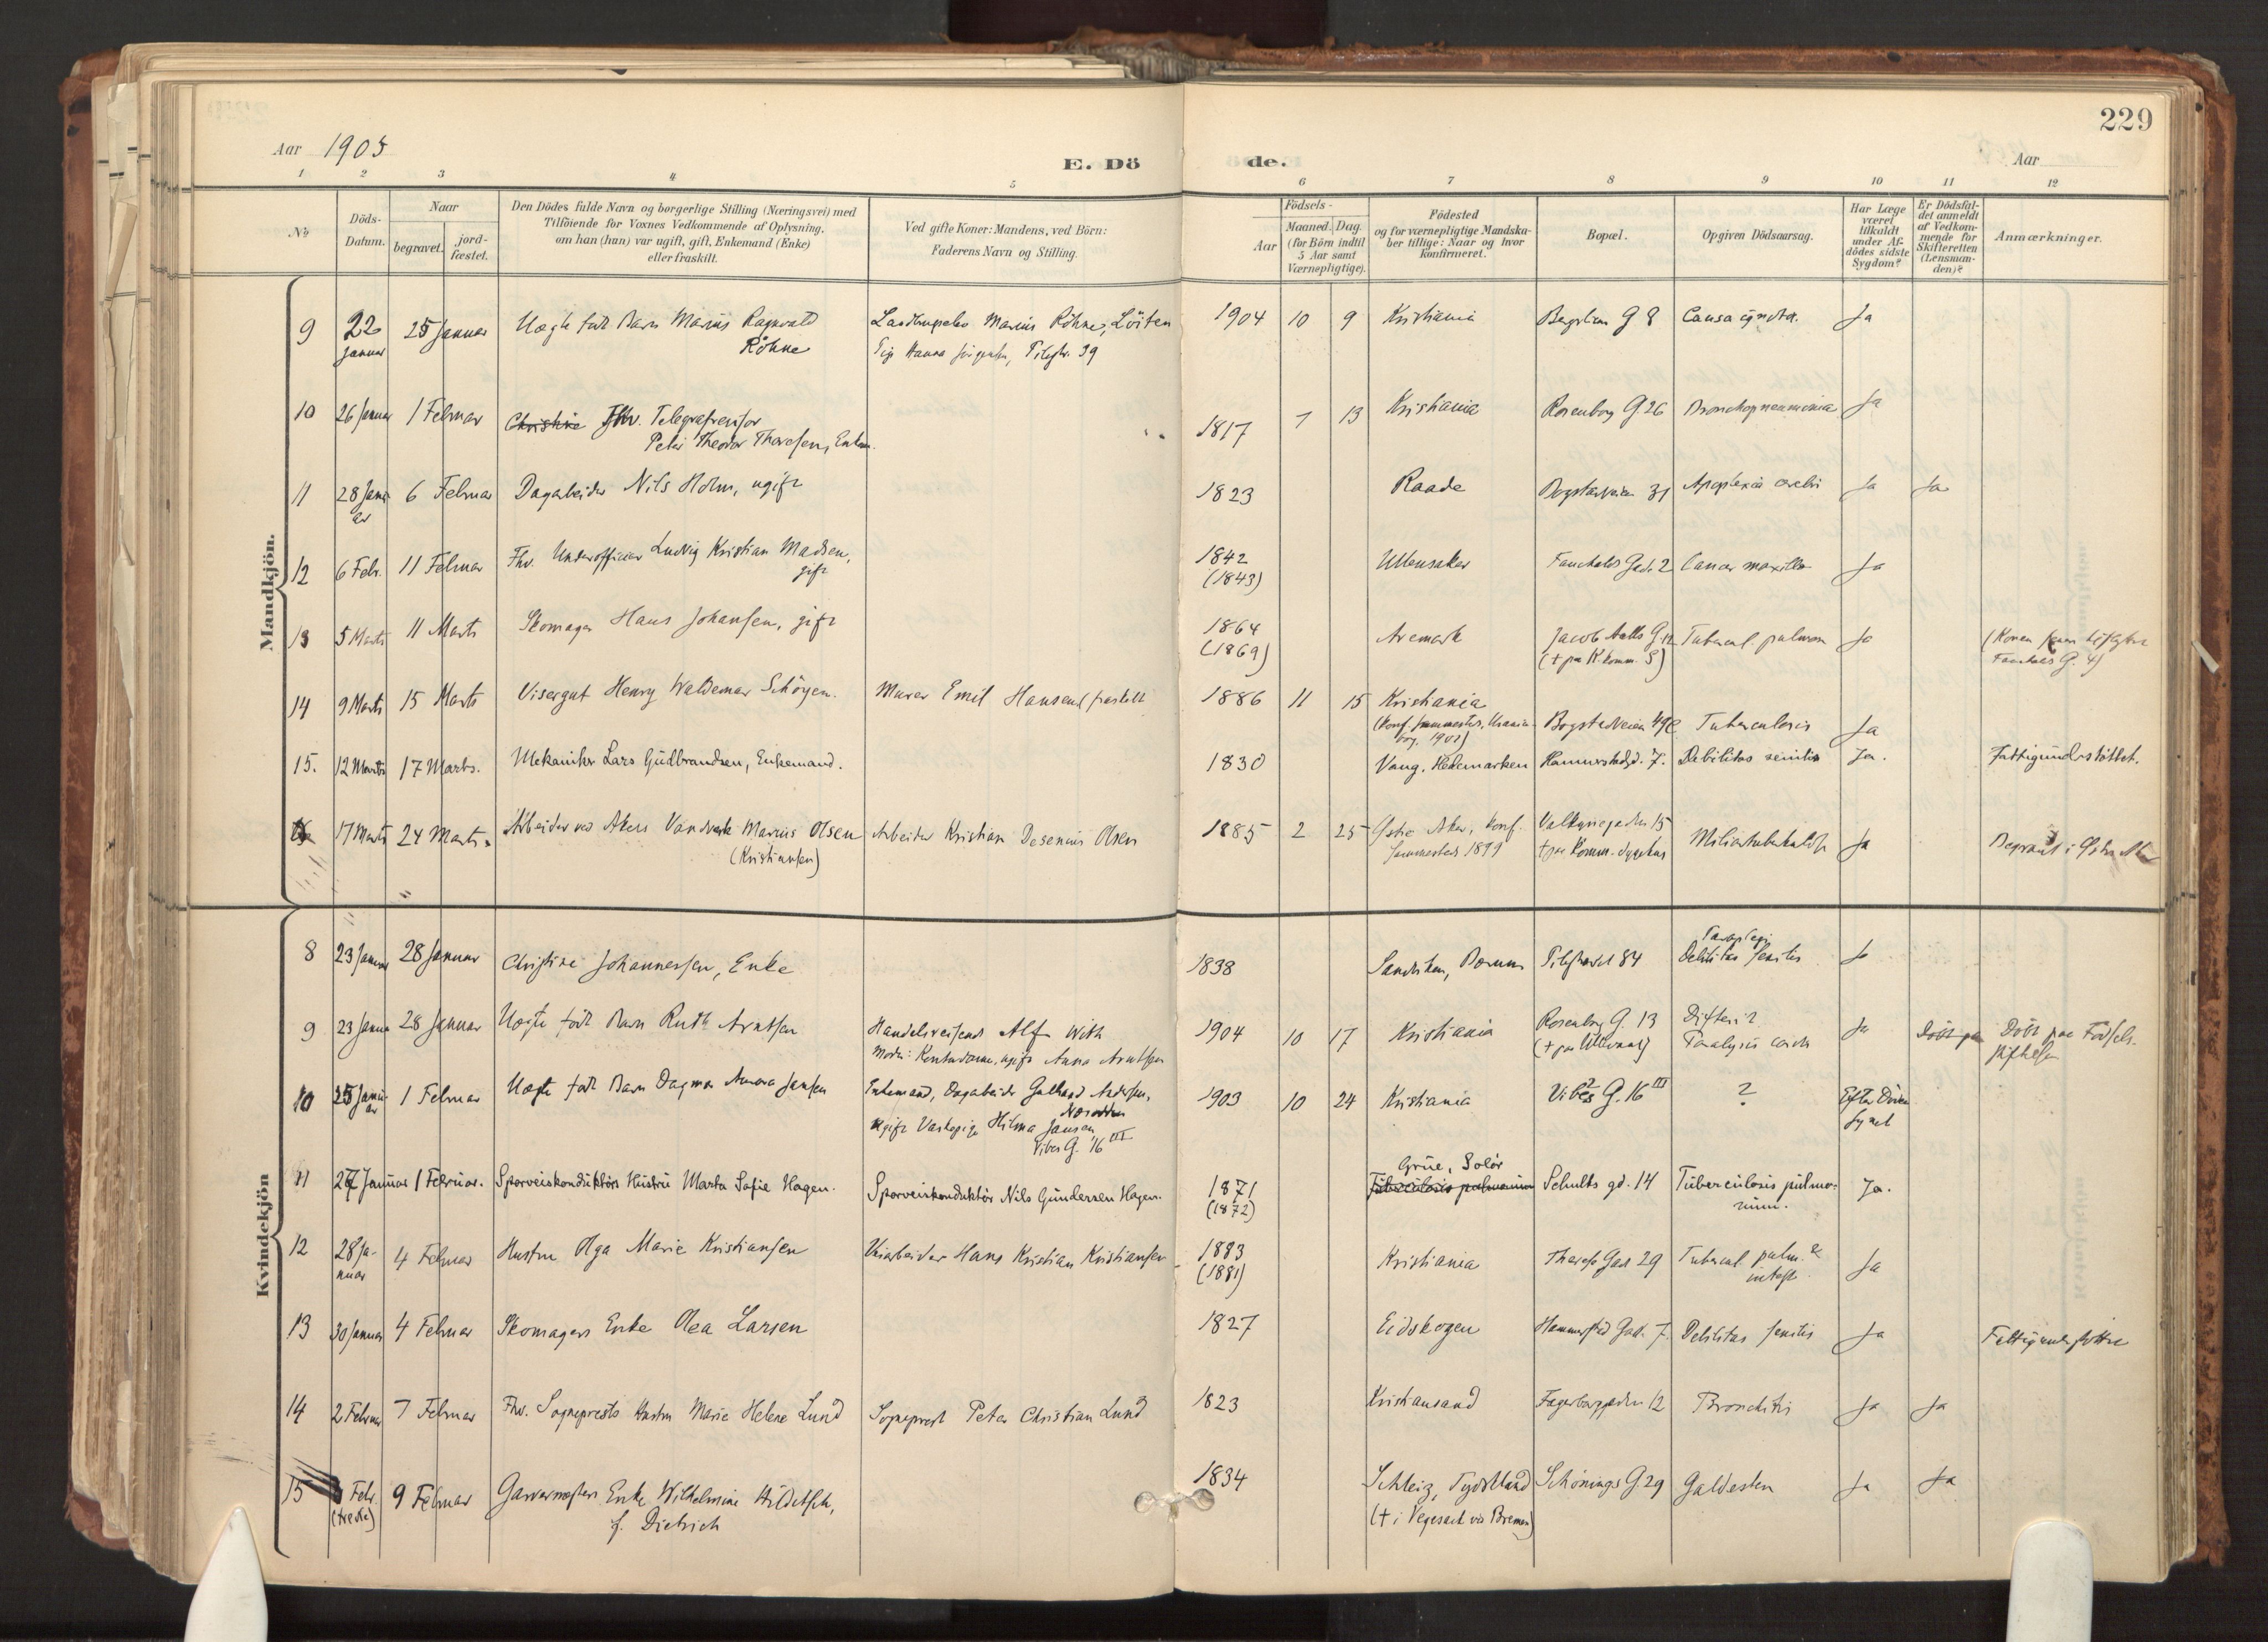 229
Aar 1905
E. Dö de.
Aar
1 2 3 4 5 6 7 8 9 10 11 12
No
Döds-Datum.
Naar
begravet.
jord-fæstet.
Den Dödes fulde Navn og borgerlige Stilling (Næringsvei) med
Tilföiende for Voxnes Vedkommende af Oplysning,
om han (hun) var ugift, gift, Enkemand (Enke)
eller fraskilt.
Ved gifte Koner: Mandens, ved Börn:
Faderens Navn og Stilling.
Födsels-
Aar
Maaned. Dag.
(for Börn indtil
5 Aar samt
Værnepligtige).
Födested
og for værnepligtige Mandska-
ber tillige: Naar og hvor
konfirmeret.
Bopæl.
Opgiven Dödsaarsag.
Har Læge
været
tilkaldt
under Af-
dödes sidste
Sygdom?
Er Dödsfal-
det anmeldt
af Vedkom-
mende for
Skifteretten
(Lensman-
den)?
Anmærkninger.
Mandkjön.
9 22 Januar 25 Januar Uægte født Barn Marius Ragnvald Röhne Marius Röhne, Löiten 1904 10 9 Kristiania G 8 Causa ignota. Ja
Pige Hanna Jörgensen, Pilestr. 39
10 26 Januar 1 Februar Christine Fhv. Telegrafrevisor
Peter Theodor Thoresen, Enkem. 1817 7 13 Kristiania Rosenborg G. 26 Bronchopneumonia Ja
11 28 Januar 6 Februar Dagarbeider Nils Holm, ugift 1823 Raade Bogstadveien 31 Apoplexia cerebri Ja Ja
12 6 Febr. 11 Februar Fhv. Underofficier Ludvig Kristian Madsen, gift 1842 (1843) Ullensaker Fauchalds Gade 2 Cancer maxillæ Ja
13 5 Marts 11 Marts Skomager Hans Johansen, gift 1864 (1869) Aremark Jacob Aalls G. 12
(+ paa K. komm. S) Tubercul. pulmon Ja (Konen
Fauchalds G. 4)
14 9 Marts 15 Marts Visergut Henry Waldemar Schöyen. Murer Emil Hansen, fraskilt 1886 11 15 Kristiania
1902) Bogstadveien 49 Tuberculosis Ja
15. 12 Marts 17 Marts. Mekaniker Lars Gudbrandsen, Enkemand. 1830 Vang, Hedemarken Hammerstadgd. 7. Debilitas senilis Ja. Fattigunderstöttet.
17 Marts 24 Marts. Arbeider ved Akers Vandverk Marius Olsen (Kristiansen) Arbeider Kristian Desenius Olsen 1885 2 25 Østre Aker, konf. 1899 Valkyriegaden 15
+ paa Komm. Sygehus Miliærtuberkulose Ja Begravet i Østre Aker
Kvindekjön
8 23 Januar 28 Januar Christine Johannessen, Enke 1838 Sandviken, Bærum Pilestrædet 84 Paraplegi
Debilitas senilis Ja
9 23 Januar 28 Januar Uægte født Barn Ruth Arntsen Handelsreisende Alf With
Moder: Kontordame, ugift Anna Arntsen 1904 10 17 Kristiania Rosenborg G. 13
(+ paa Ullevaal) Difterit
Paralysis cordis Ja Døbt paa Døbt paa Fødsels-
stiftelsen
10 25 Januar 1 Februar Uægte født Barn Dagmar Aurora Jansen Enkemand, Dagarbeider Gulbrand Andersen, Næsodden
ugift Vaskepige Hilma Jansen
Vibes G. 16 III 1903 10 24 Kristiania Vibes G. 16 III ? Efter Døden
synet
11 27 Januar 1 Februar. Sporveiskonduktörs Hustru Marta Sofie Hagen. Sporveiskonduktör Nils Gundersen Hagen. 1871 (1872) Grue, Solör
Tuberculosis pulmonum Schults gd. 14 Tuberculosis pulmo-
num. Ja.
12 28 Januar 4 Februar Hustru Olga Marie Kristiansen Veiarbeider Hans Kristian Kristiansen 1883 (1881) Kristiania Theresesgade 29 Tubercul. pulm. &
intest. Ja
13 30 Januar 4 Februar Skomagers Enke Olea Larsen 1827 Eidskogen Hammerstad Gad. 7. Debilitas senilis Ja Fattigunderstöttet
14 2 Februar 7 Februar Fhv. Sogneprests Hustru Marie Helene Lund Sogneprest Peter Christian Lund 1823 Kristiansand Fagerborggaden 12 Bronchitis Ja Ja
15 3 Febr.
(tredie) 9 Februar Garvermesters Enke Wilhelmine
f. Dietrich 1834 Schleiz, Tydskland
(+ i Vegesack via Bremen) Schönings G. 29 Galdesten Ja Ja